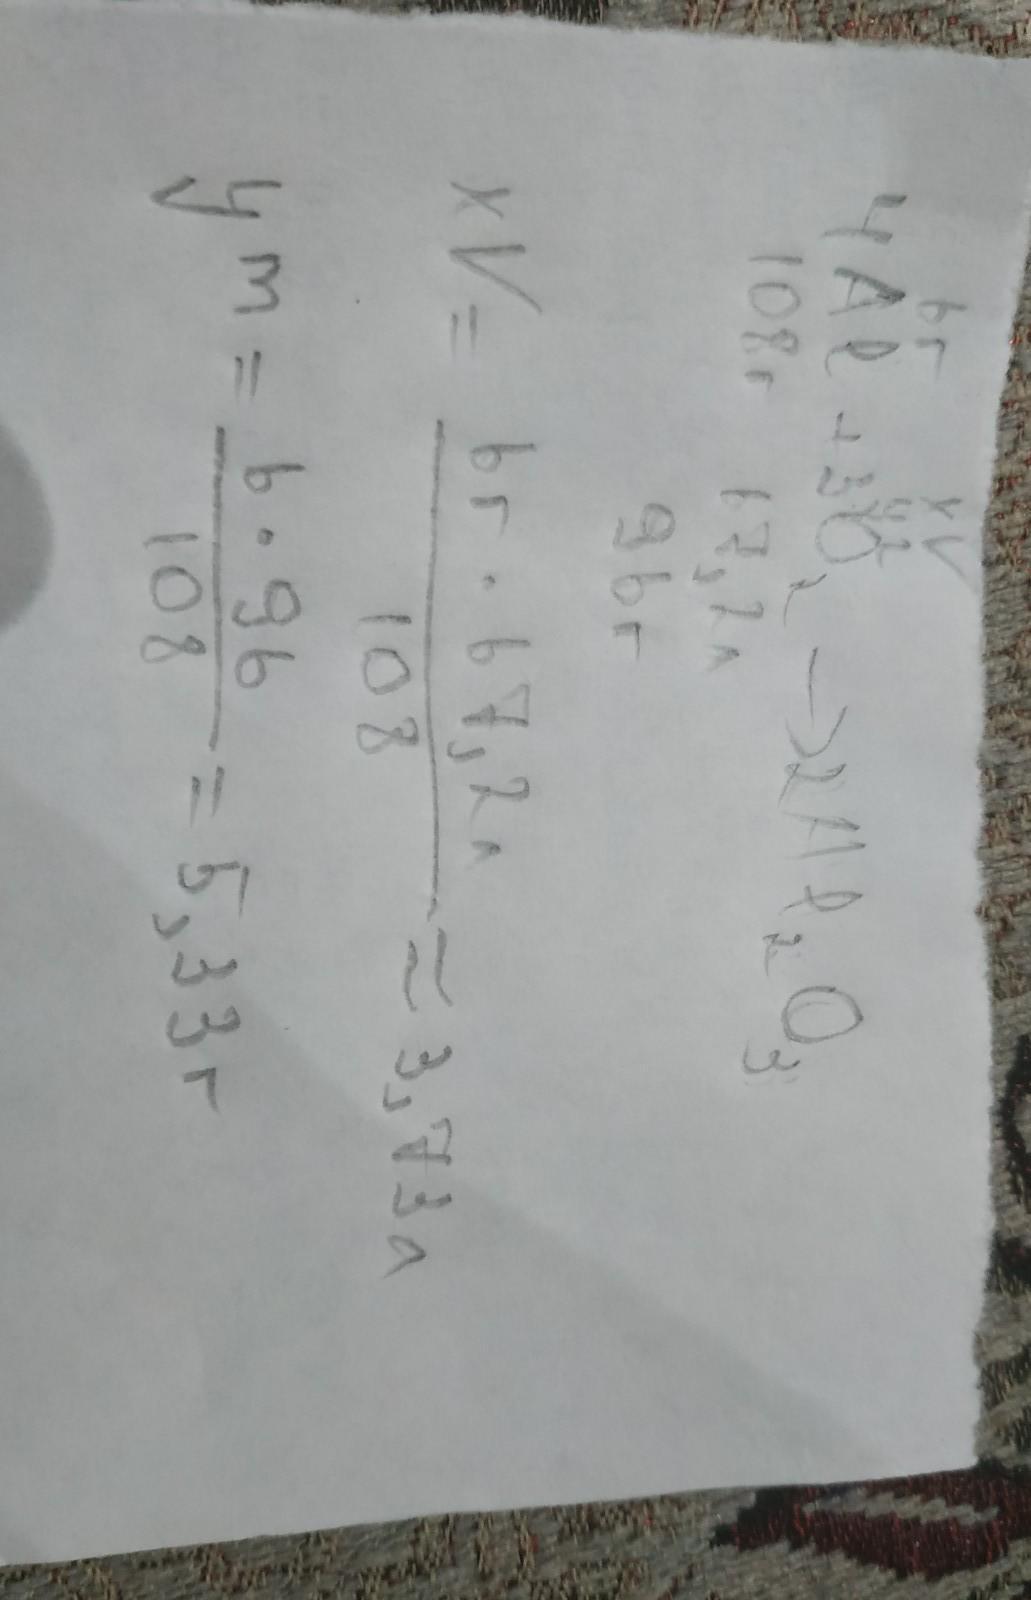 6г xV
yг
4Al + 3O2 → 2Al2O3
108г 67,2л
96г
xV = 6г · 67,2л / 108 = 3,73л
ym = 6 · 96 / 108 = 5,33г